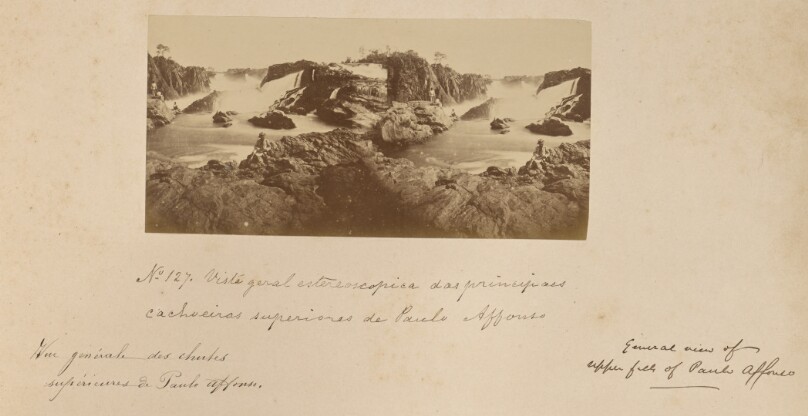 Nº 127. Vista geral estereoscopica das principaes
cachoeiras superiores de Paulo Affonso
Vue générale des chutes
supérieures de Paulo Affonso.
General view of
upper falls of Paulo Affonso